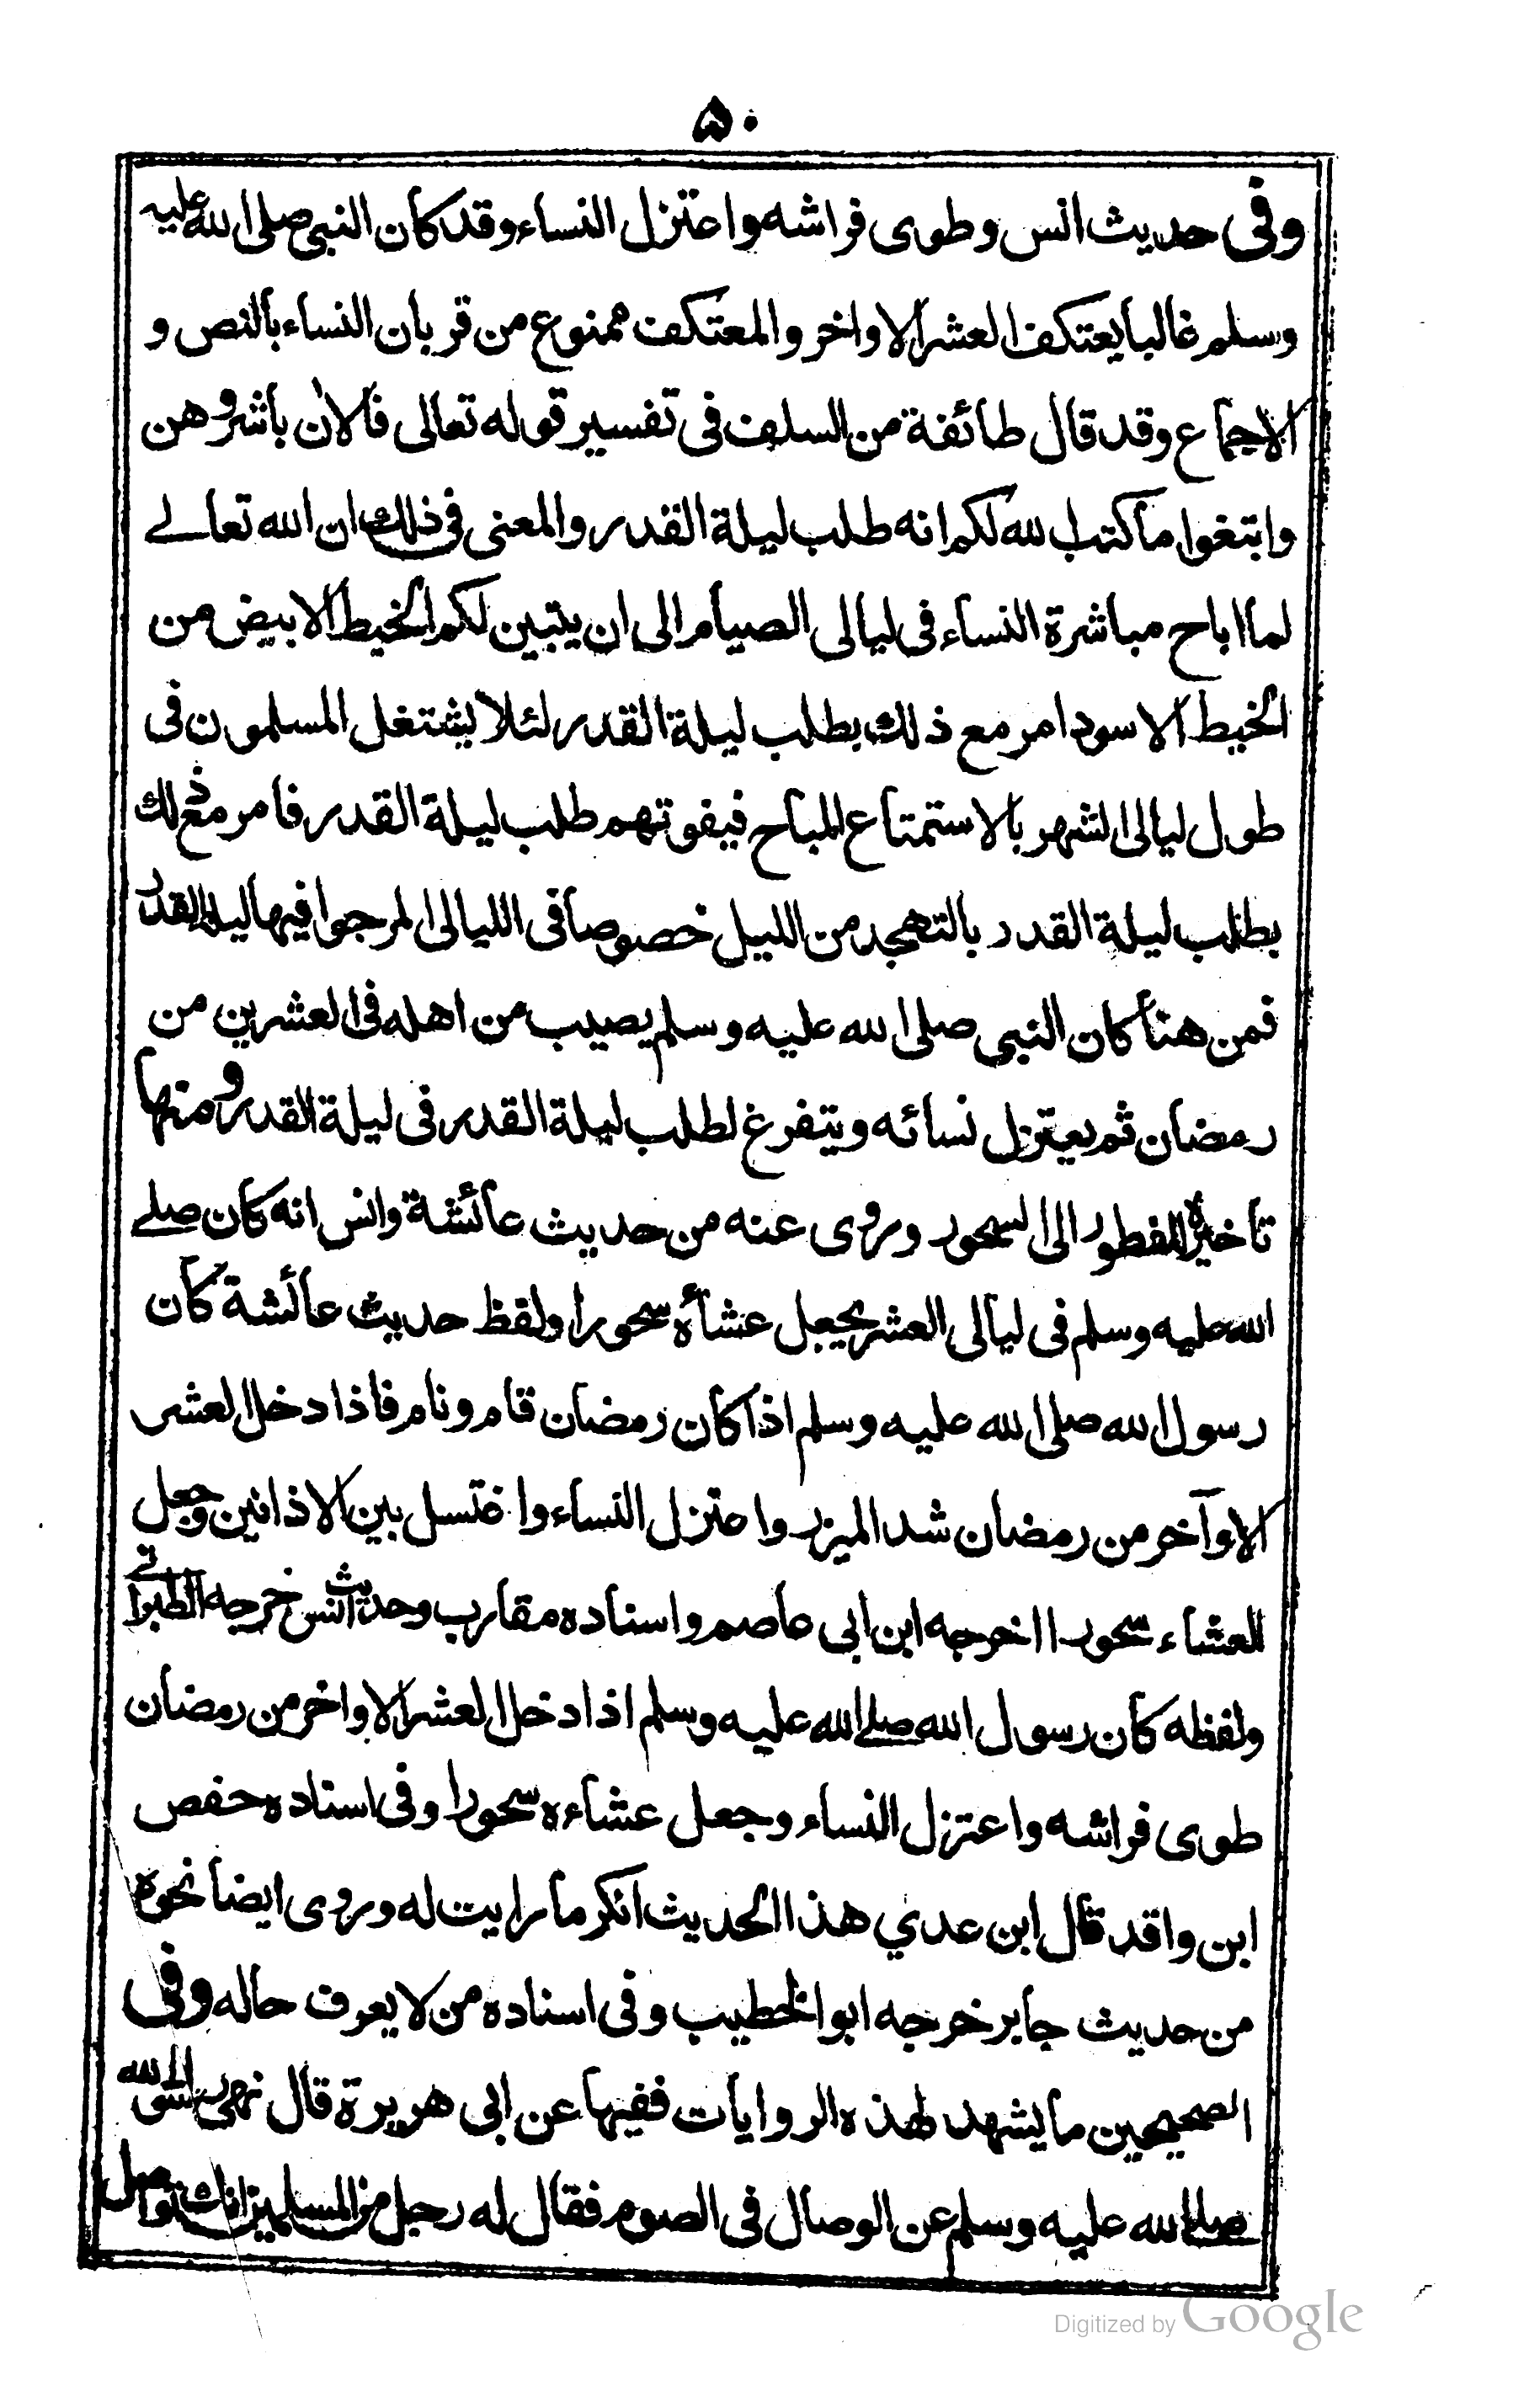 ۵۰
وفی حدیث انس وطوی فراشه واعتزل النساء وقد کان النبی صلی الله علیه
وسلم غالبا یعتکف العشر الاواخر والمعتکف ممنوع من قربان النساء بالنص و
الاجماع وقد قال طائفة من السلف فی تفسیر قوله تعالی فالاٰن باشروهن
وابتغوا ما کتب الله لکم انه طلب لیلة القدر والمعنی فی ذلك ان الله تعالے
لما اباح مباشرة النساء فی لیالی الصیام الی ان یتبین لکم الخیط الابیض من
الخیط الاسود امر مع ذلك بطلب لیلة القدر لئلا یشتغل المسلمون فی
طول لیالی الشهر بالاستمتاع المباح فیفوتهم طلب لیلة القدر فامر مع ذلك
بطلب لیلة القدر بالتهجد من اللیل خصوصا فی اللیالی المرجوا فیها لیلة القدر
فمن هنا کان النبی صلی الله علیه وسلم یصیب من اهله فی العشرین من
رمضان ثم یعتزل نسائه ویتفرغ لطلب لیلة القدر فی لیلة القدر ومنها
تاخیره الفطور الی السحور وروی عنه من حدیث عائشة وانس انه کان صلے
الله علیه وسلم فی لیالی العشر یجعل عشاءه سحورا ولفظ حدیث عائشة کان
رسول الله صلی الله علیه وسلم اذا کان رمضان قام ونام فاذا دخل العشر
الاوآخر من رمضان شد المیزر واعتزل النساء واغتسل بین الاذانین وجعل
العشاء سحورا اخرجه ابن ابی عاصم واسناده مقارب وحدیث انس خرجه الطبرانے
ولفظه کان رسول الله صلے الله علیه وسلم اذا دخل العشر الاواخر من رمضان
طوی فراشه واعتزل النساء وجعل عشاءه سحورا وفی اسناده حفص
ابن واقد قال ابن عدي هذا الحدیث انکر ما رایت له وروی ایضا نحوه
من حدیث جابر خرجه ابو الخطیب وفی اسناده من لا یعرف حاله وفی
الصحیحین ما یشهد لهذه الروایات ففیها عن ابی هریرة قال نهی رسول الله
صلے الله علیه وسلم عن الوصال فی الصوم فقال له رجل من المسلمین انك تواصل
Digitized by Google